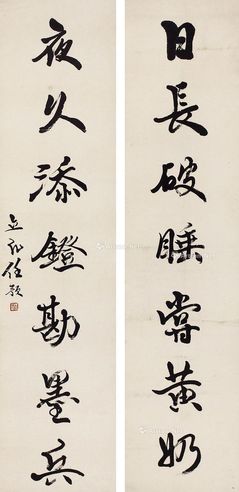 日長破睡嘗黃奶
夜久添鐙勘墨兵
立凡任頤